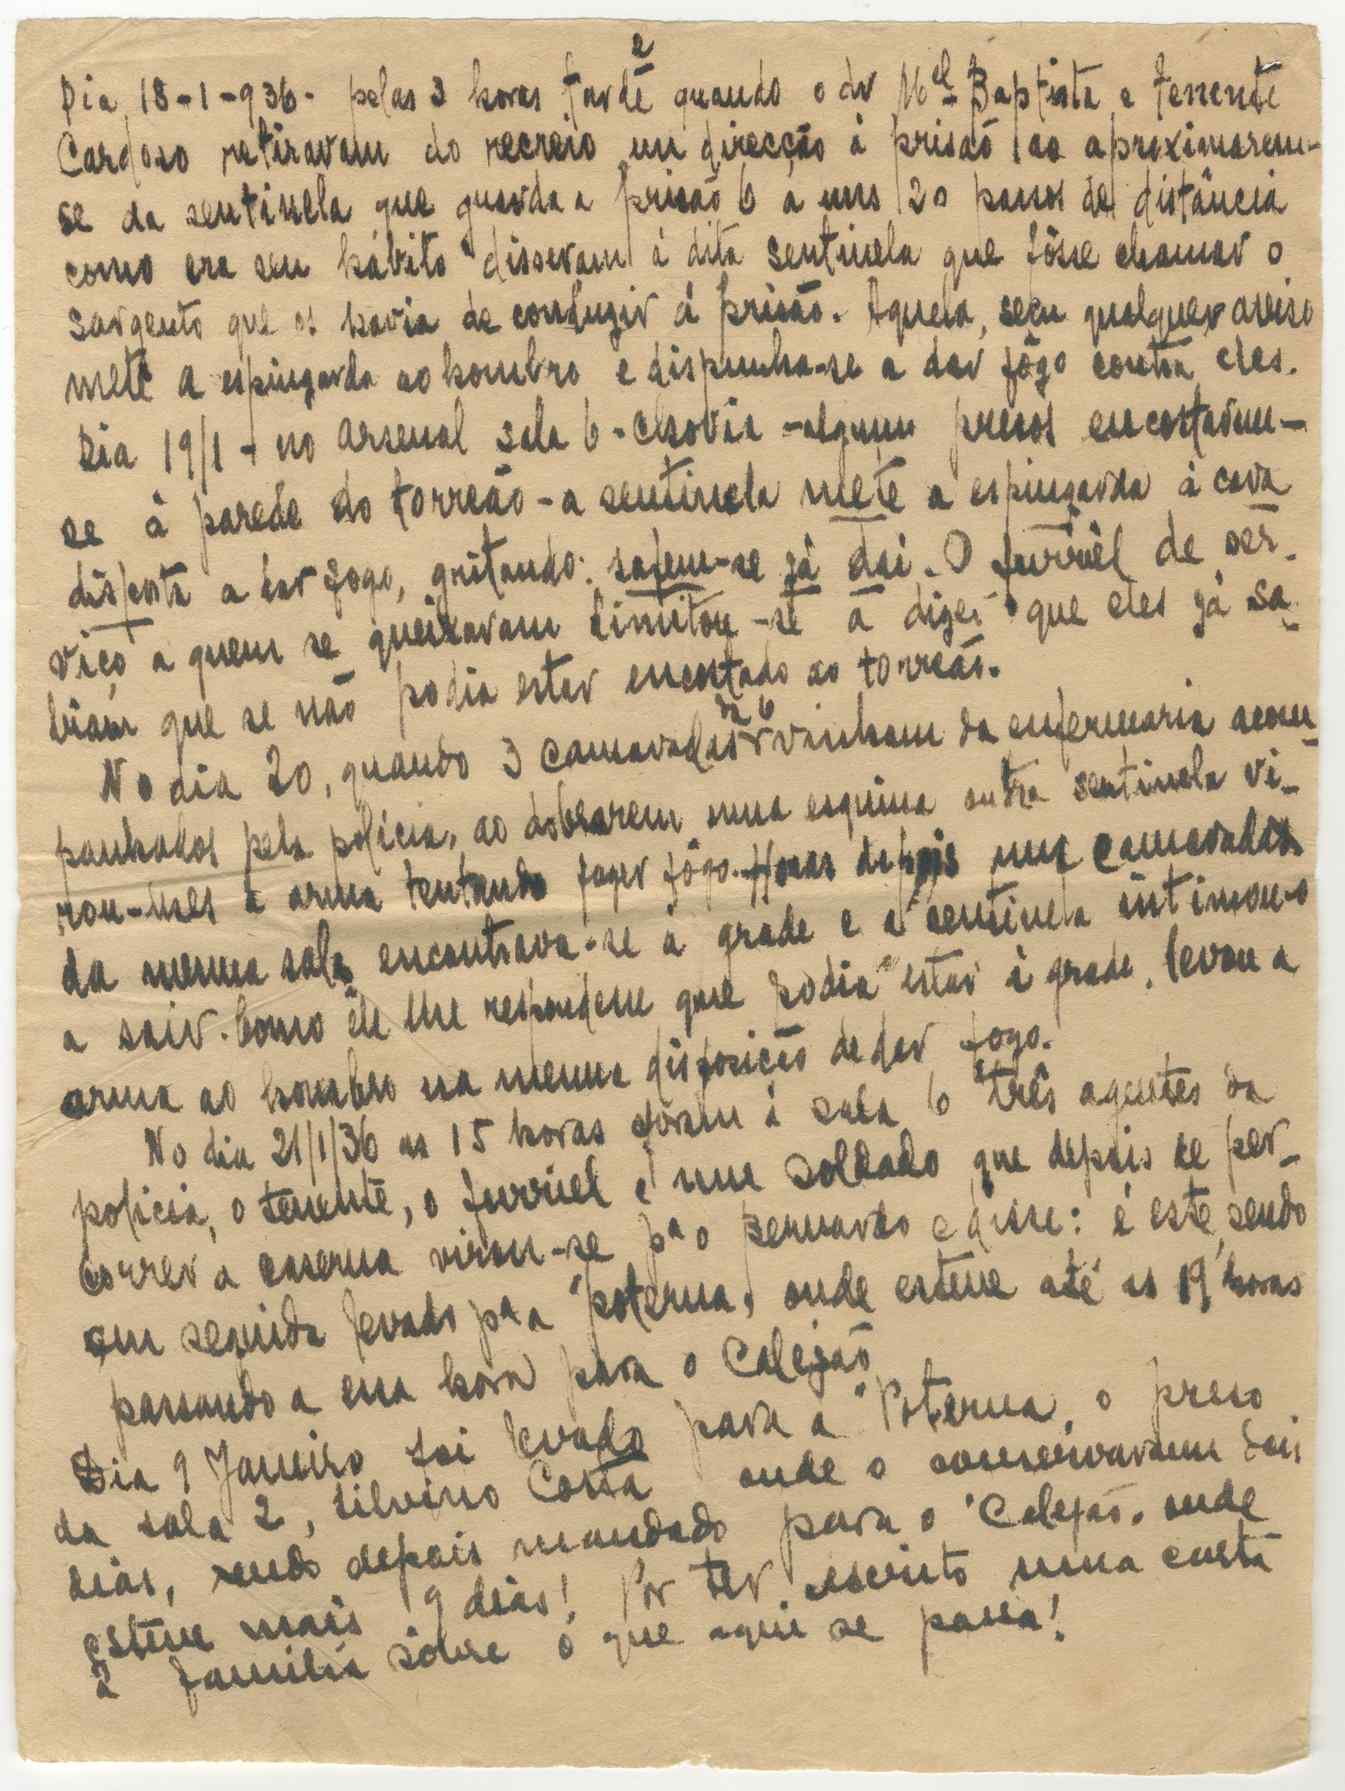 Dia 18-1-936- pelas 3 horas tarde quando o dr Mel Baptista e tenente
Cardoso retiravam do recreio em direcção á prisão ao aproximarem-
se da sentinela que guarda a prisão 6 a uns 20 passos de distância
como era seu hábito disseram á dita sentinela que fôsse chamar o
sargento que os havia de conduzir á prisão. Aquela, sem qualquer aviso
mete a espingarda ao hombro e dispunha-se a dar fôgo contra eles.
Dia 19/1 - no arsenal sala 6 - chovia - alguns presos encostavam-
se á parede do torreão - a sentinela mete a espingarda á cara
disposta a dar fogo, gritando: safem-se já dai. O furriél de ser-
viço a quem se queixavam limitou-se a dizer que eles já sa-
biam que se não podia estar encostado ao torreão.
No dia 20, quando 3 camaradas da 6 vinham da enfermaria acom-
panhados pela policia, ao dobrarem uma esquina outra sentinela vi-
rou-lhes a arma tentando fazer fôgo. Horas depois um camarada
da mesma sala encontrava-se á grade e a sentinela intimou-o
a sair. Como êle lhe respondesse que podia estar á grade, levou a
arma ao hombro na mesma disposição de dar fogo.
No dia 21/1/36 as 15 horas foram á sala 6 três agentes da
policia, o tenente, o furriel e um soldado que depois de per-
correr a caserna virou-se pª o Bernardo e disse: é este, sendo
em seguida levado pª a poterna, onde esteve até as 19 horas
passando a essa hora para o Calejão
Dia 9 Janeiro foi levado para a Poterna o preso
da sala 2, Silvino Costa onde o conservaram dois
dias, sendo depois mandado para o Calejão, onde
esteve mais 9 dias! Por ter escrito uma carta
á familia sôbre o que aqui se passa!